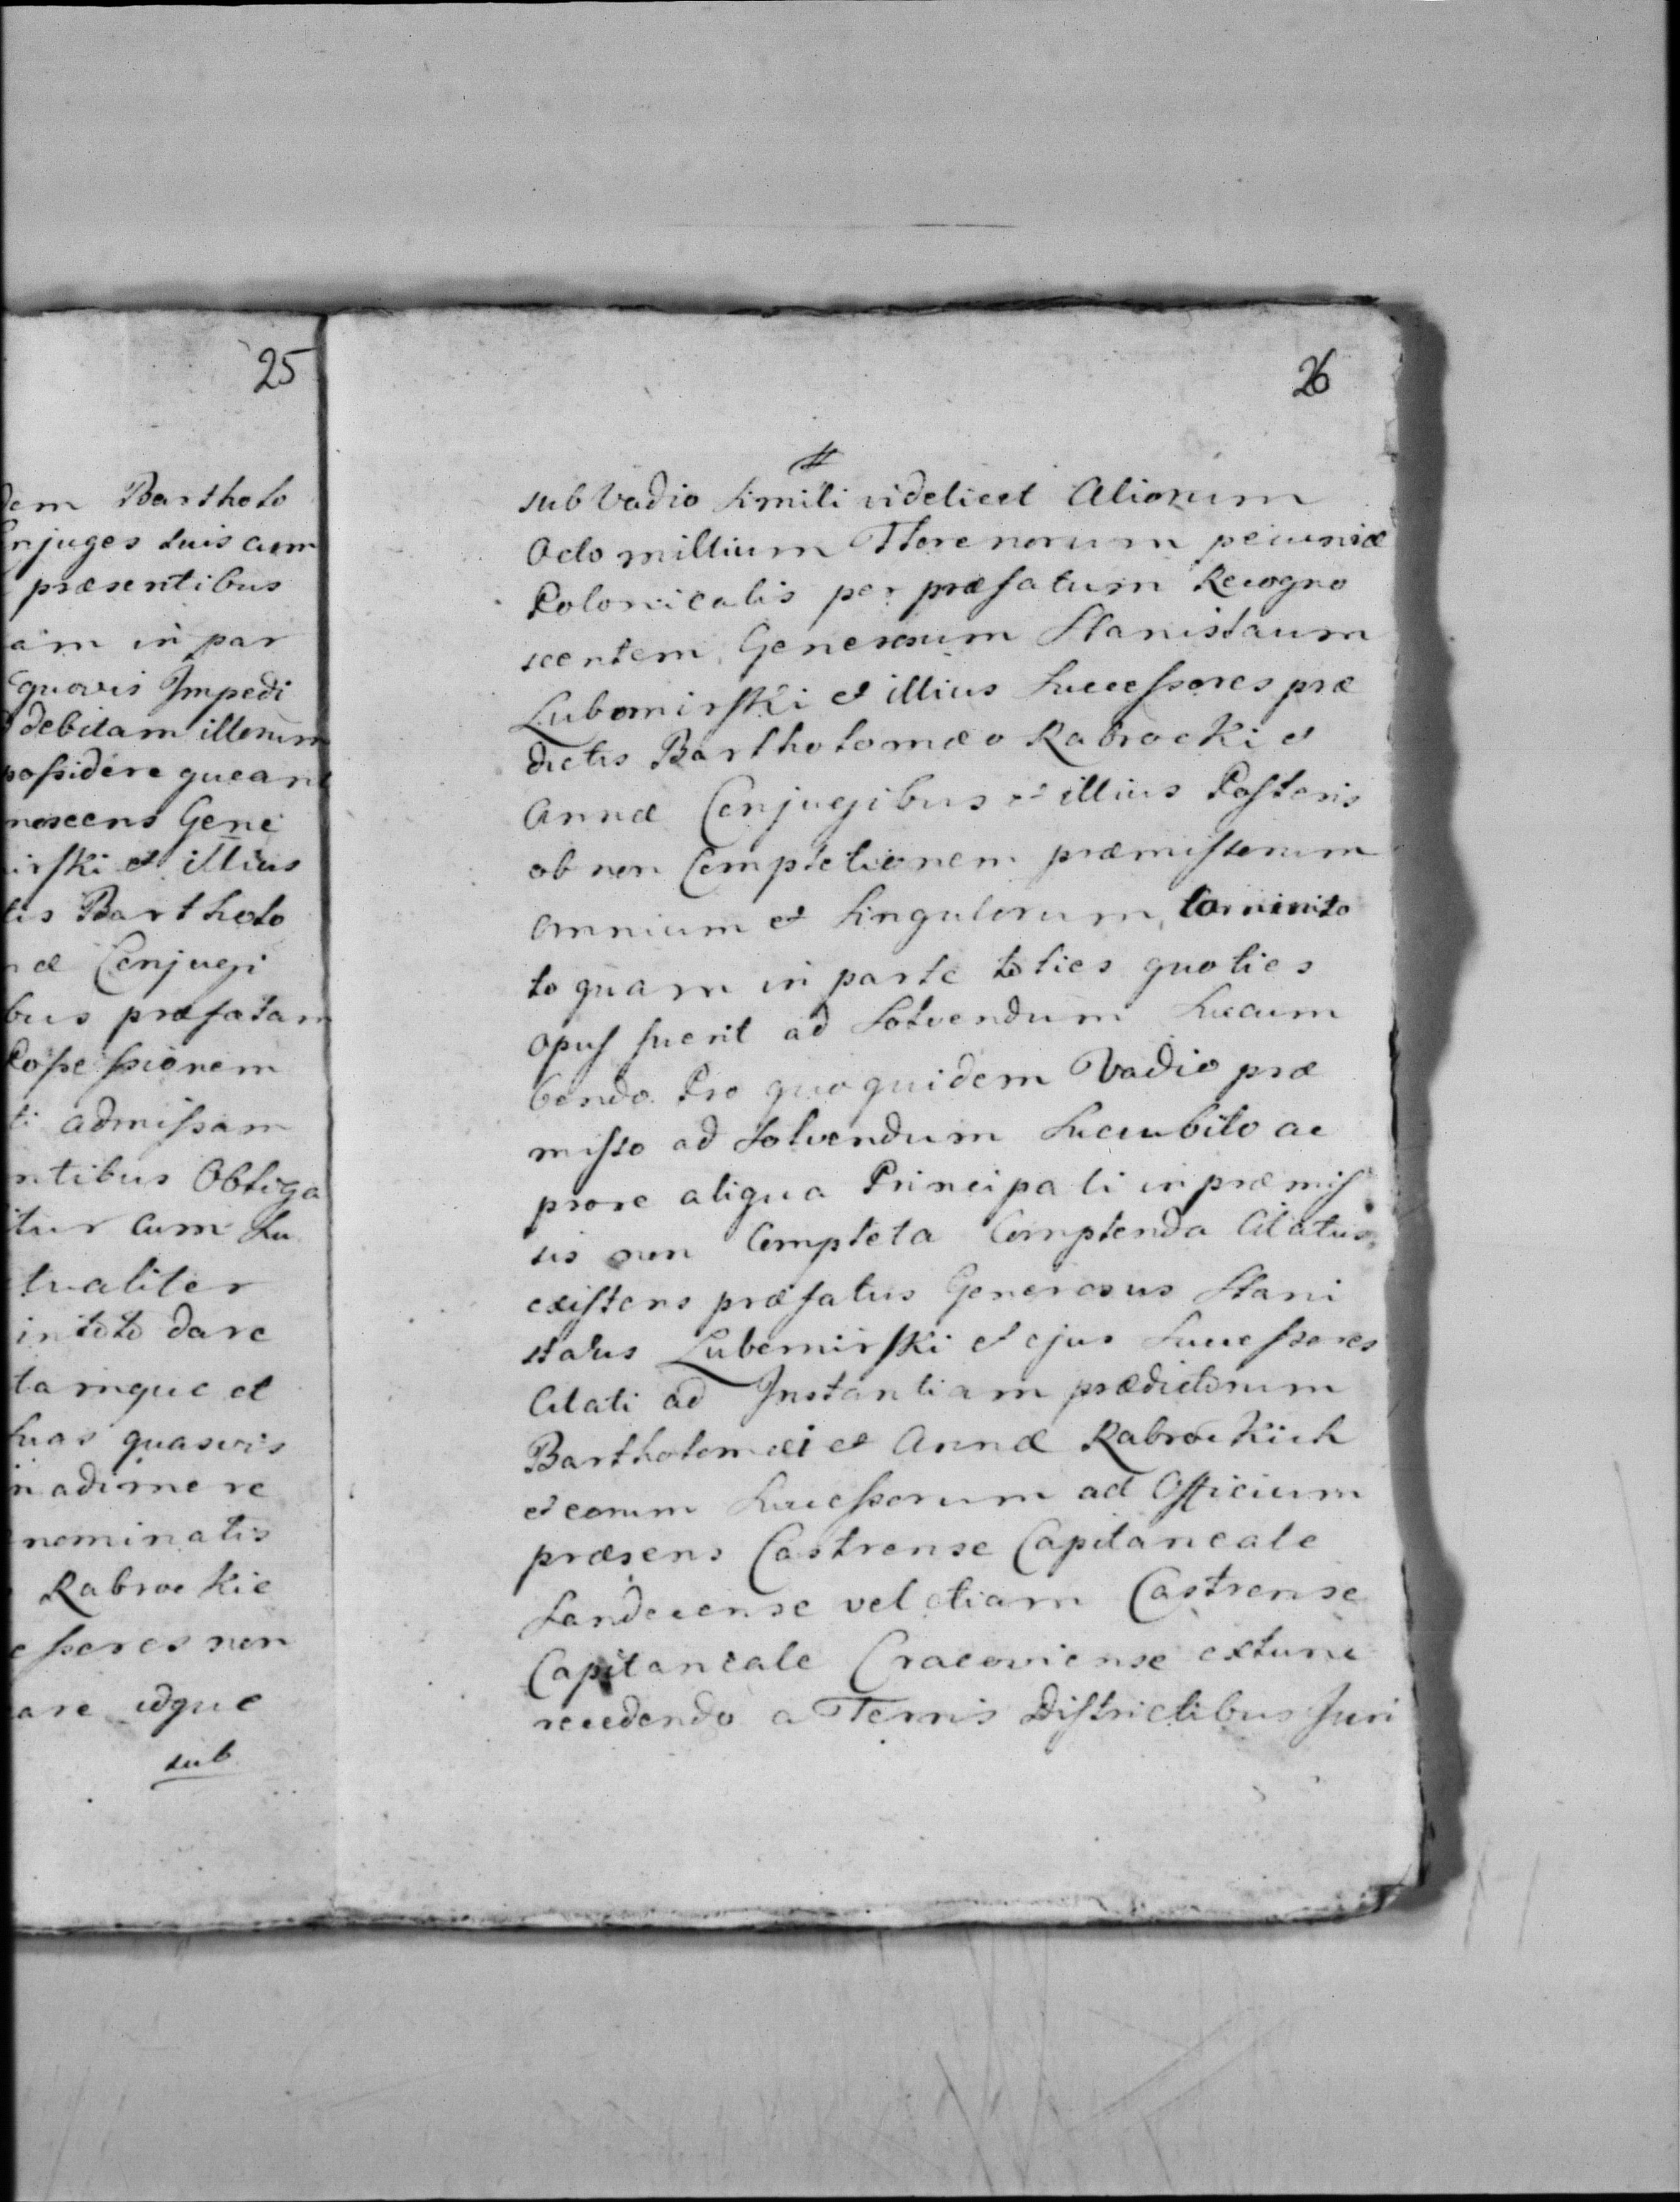 25
dem Bartholo
onjuges suis cum
præsentibus
am in par
quovis Impedi
debitam illorum
possidere queant
noscens Gene
irski et illius
tis Bartholo
næ Conjugi
bus præfatam
Possessionem
ti admissam
ntibus Obliga
itur cum Su
tualiter
in toto dare
tamque et
suas quasvis
n adimere
nominatis
Rabrockie
essores non
are idque
sub
26
sub Vadio simili videlicet Aliorum
Octo millium Florenorum pecuniæ
Polonicalis per præfatum Recogno
scentem Generosum Stanislaum
Lubomirski et illius Successores præ
dictis Bartholomæo Rabrocki et
Annæ Conjugibus et illius Posteris
ob non Completionem præmissorum
omnium et singulorum, tam in to
to quam in parte toties quoties
opus fuerit ad Solvendum Succum
bendo. Pro quo quidem Vadio præ
misso ad Solvendum Succubito ac
pro re aliqua Principali in præmis
sis non Completa Complenda Citatus
existens præfatus Generosus Stani
slaus Lubomirski et ejus Successores
Citati ad Instantiam prædictorum
Bartholomæi et Annæ Rabrockich
et eorum Successorum ad Officium
præsens Castrense Capitaneale
Sandecense vel etiam Castrense
Capitaneale Cracoviense extunc
recedendo a Terris Districtibus Juri